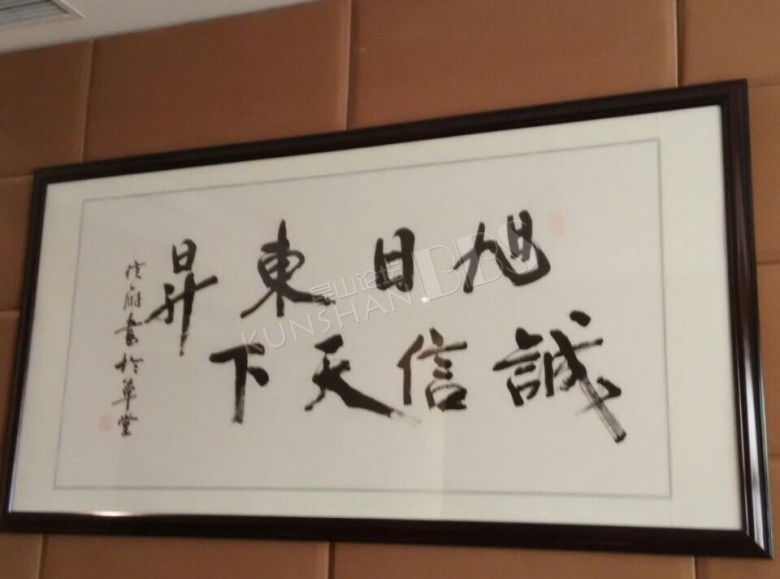 旭日東昇
誠信天下
書於草堂
昆山论坛 BBS
KUNSHAN